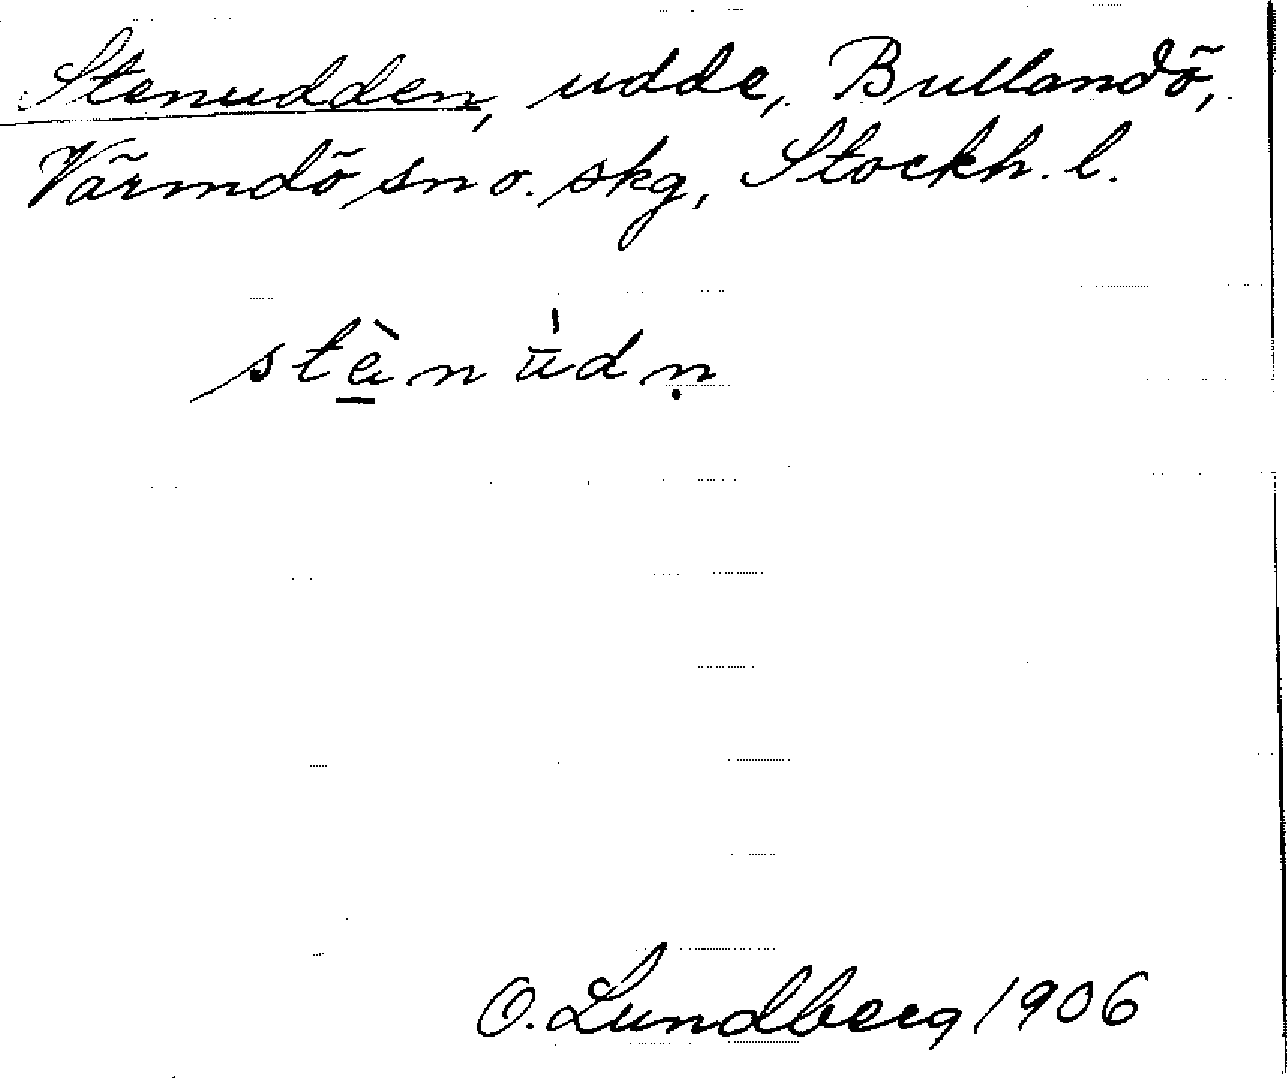 Stenudden, udde, Bullandö,
Värmdö sn o. skg, Stockh. l.
stè̱n ū̍dṇ
O. Lundberg 1906